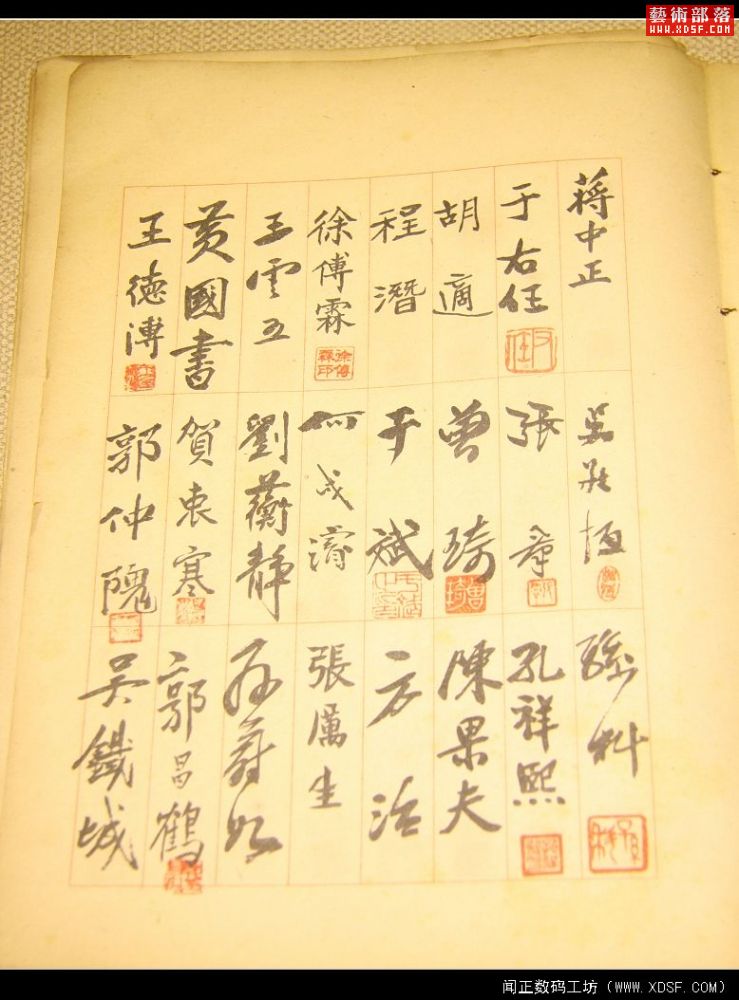 藝術部落
WWW.XDSF.COM
蔣中正
于右任
胡適
程潛
徐傅霖
徐傅霖印
王雲五
黃國書
王德溥
吳敬恆
張羣
曾琦
曾琦
于斌
何成濬
劉蘅靜
賀衷寒
郭仲隗
孫科
孫科
孔祥熙
陳果夫
方治
張厲生
孫蔚如
郭昌鶴
吳鐵城
闻正数码工坊（WWW.XDSF.COM）